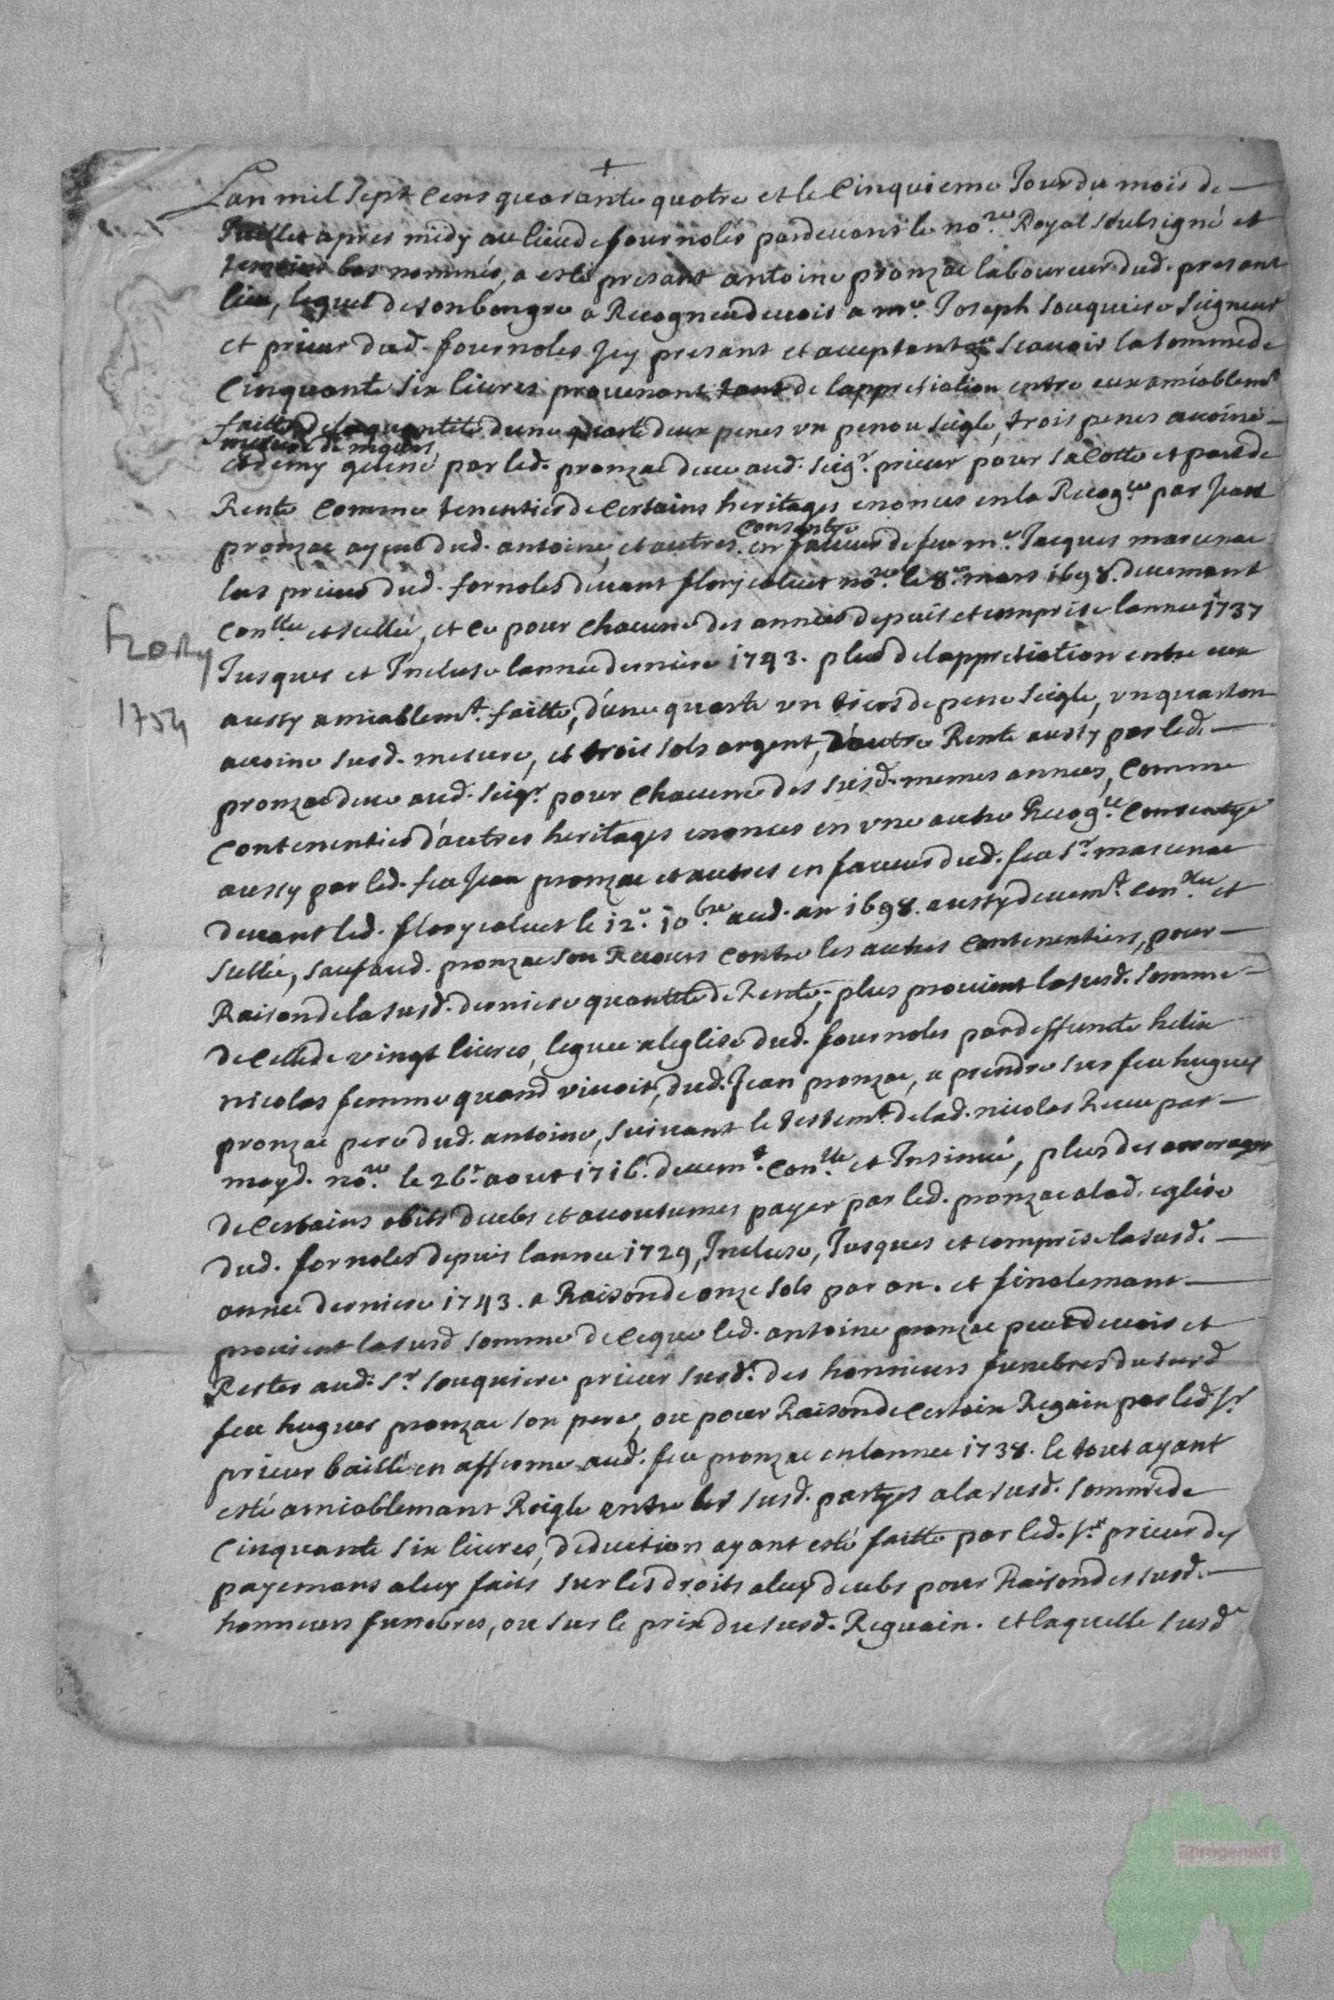 +
Lan mil sept cens quarante quatre et le Cinquieme Jour du mois de
Juillet apres midy au lieu de fournolés pardevant le no.re Royal soubsigné et
temoins bas nommés, a esté presant antoine pronzac laboureur dud. presant
lieu, lequel de son bon gre a Recogneu devoir a m.re Joseph souquiere seigneur
et prieur dud. fournoles Jcy presant et acceptant scavoir la somme de
Cinquante six livres provenant de lappretiation entre eux amiablem.t
faitte de la quantité dune quarte deux penes un penou seigle, trois penes avoine
mesure de
et demy geline par led. pronzac deue aud. seig.r prieur pour sa cotte et part de
Rente Comme tenentier de Certains heritages enonces en la Recog.ce par Jean
consentye
pronzac ayeul dud. antoine, et autres en faveur de feu m.re Jacques marcenac
lors prieur dud. fornoles devant flory calvet no.re le 8.e mars 1698. deuemant
con.llée et sellée, et ce pour chacune des années depuis et comprise lannée 1737
Jusques et Incluse lannée derniere 1743. plus de lappretiation entre eux
aussy amiablem.t faitte, d'une quarte un tiers de pene seigle, un quarton
avoine susd. mesure, et trois sols argent, d'autre Rente aussy par led.
pronzac deue aud. seig.r pour chacune des susd. memes années, comme
contenentier d'autres heritages enonces en une autre Recog.ce consentye
aussy par led. feu Jean pronzac et autres en faveur dud. feu s.r marcenac
devant led. flory calvet le 12.e 10.bre aud. an 1698. aussy deuem.t con.llée et
sellée, sauf aud. pronzac son Recours contre les autres contenentiers, pour
Raison de la susd. derniere quantité de Rente, plus provient la susd. somme
de celle de vingt livres, leguée a leglise dud. fournoles par deffunte helix
nicolas femme quand vivoit, dud. Jean pronzac, a prendre sur feu hugues
pronzac pere dud. antoine, suivant le testem.t de lad. nicolas Receu par
moyd. no.re le 26.e aout 1716. deuem.t con.llé et Insinué, plus des arrerages
de certains obits deubs et accoutumes payer par led. pronzac a lad. eglise
dud. fornoles depuis lannée 1729, Incluse, Jusques et comprise la susd.
année derniere 1743. a Raison de onze sols par an. et finalemant
provient la susd. somme de ce que led. antoine pronzac peut devoir et
Rester aud. s.r souquiere prieur susd. des honneurs funebres du susd.
feu hugues pronzac son pere, ou pour Raison de certain Regain par led. s.r
prieur baillé en afferme aud. feu pronzac en lannée 1738. le tout ayant
esté amiablemant Reiglé entre les susd. partyes a la susd. somme de
Cinquante six livres, deduction ayant esté faitte par led. s.r prieur des
payemans a luy faits sur les droits a luy deubs pour Raison des susd.
honneurs funebres, ou sur le prix du susd. Reguain. et laquelle susd.
1754
aprogemere